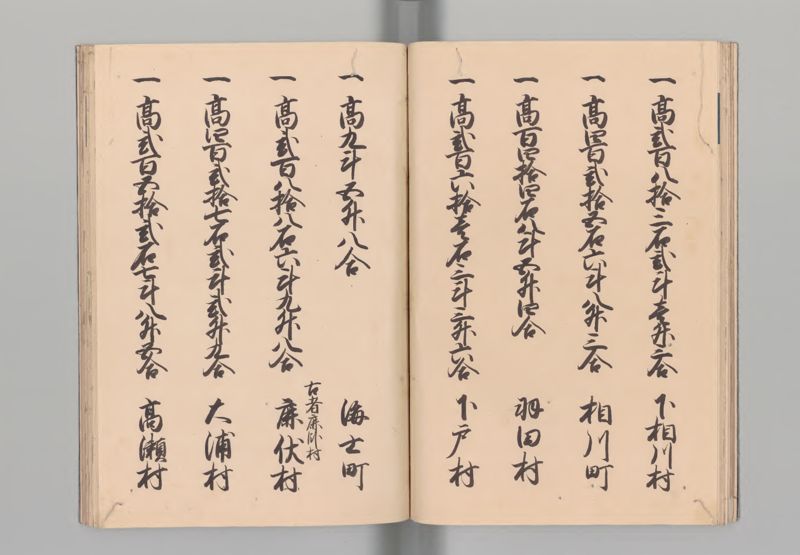 一 高弐百八拾三石弐斗壱升二合 下相川村
一 高四百弐拾五石六斗八升三合 相川町
一 高百四拾四石八斗五升四合 羽田村
一 高弐百六拾壱石三斗二升六合 下戸村
一 高九斗五升八合 海士町
一 高弐百八拾八石六斗九升八合 鹿伏村
古者鹿臥村
一 高四百弐拾七石弐斗弐升九合 大浦村
一 高弐百五拾弐石七斗八升五合 高瀬村